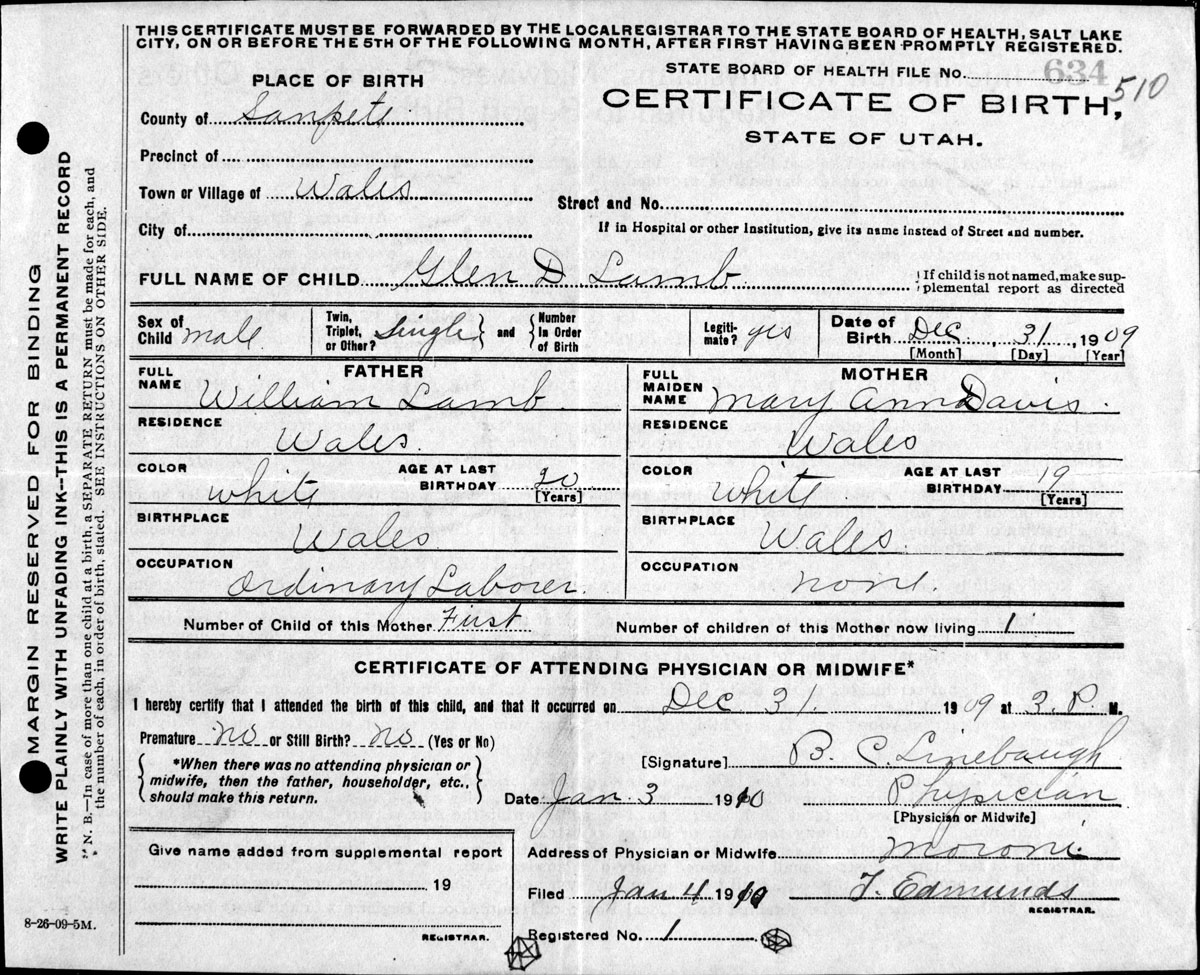 THIS CERTIFICATE MUST BE FORWARDED BY THE LOCAL REGISTRAR TO THE STATE BOARD OF HEALTH, SALT LAKE
CITY, ON OR BEFORE THE 5TH OF THE FOLLOWING MONTH, AFTER FIRST HAVING BEEN PROMPTLY REGISTERED.
STATE BOARD OF HEALTH FILE No. 634 510
PLACE OF BIRTH
CERTIFICATE OF BIRTH,
STATE OF UTAH.
County of Sanpete
Precinct of
Town or Village of Wales
Street and No.
City of
If in Hospital or other Institution, give its name instead of Street and number.
FULL NAME OF CHILD Glen D Lamb
If child is not named, make sup-
plemental report as directed
Sex of Child male
Twin, Triplet, or Other? Single and Number in Order of Birth
Legiti-mate? yes
Date of Birth Dec 31, 1909
[Month] [Day] [Year]
FATHER
FULL NAME William Lamb
RESIDENCE Wales
COLOR White AGE AT LAST BIRTHDAY 20 [Years]
BIRTHPLACE Wales
OCCUPATION Ordinary Laborer.
MOTHER
FULL MAIDEN NAME Mary Ann Davis.
RESIDENCE Wales
COLOR White AGE AT LAST BIRTHDAY 19 [Years]
BIRTHPLACE Wales.
OCCUPATION none.
Number of Child of this Mother First Number of children of this Mother now living 1
CERTIFICATE OF ATTENDING PHYSICIAN OR MIDWIFE*
I hereby certify that I attended the birth of this child, and that it occurred on Dec 31. 1909 at 3. P. M.
Premature No or Still Birth? No. (Yes or No)
*When there was no attending physician or
midwife, then the father, householder, etc.,
should make this return.
[Signature] B. C. Linebaugh
Date Jan. 3 1910 Physician
[Physician or Midwife]
Give name added from supplemental report
19
REGISTRAR.
Address of Physician or Midwife Moroni
Filed Jan 4 1910 T. Edmunds
REGISTRAR.
Registered No. 1
8-26-09-5M.
MARGIN RESERVED FOR BINDING
WRITE PLAINLY WITH UNFADING INK--THIS IS A PERMANENT RECORD
N. B.—In case of more than one child at a birth, a SEPARATE RETURN must be made for each, and
the number of each, in order of birth, stated. SEE INSTRUCTIONS ON OTHER SIDE.